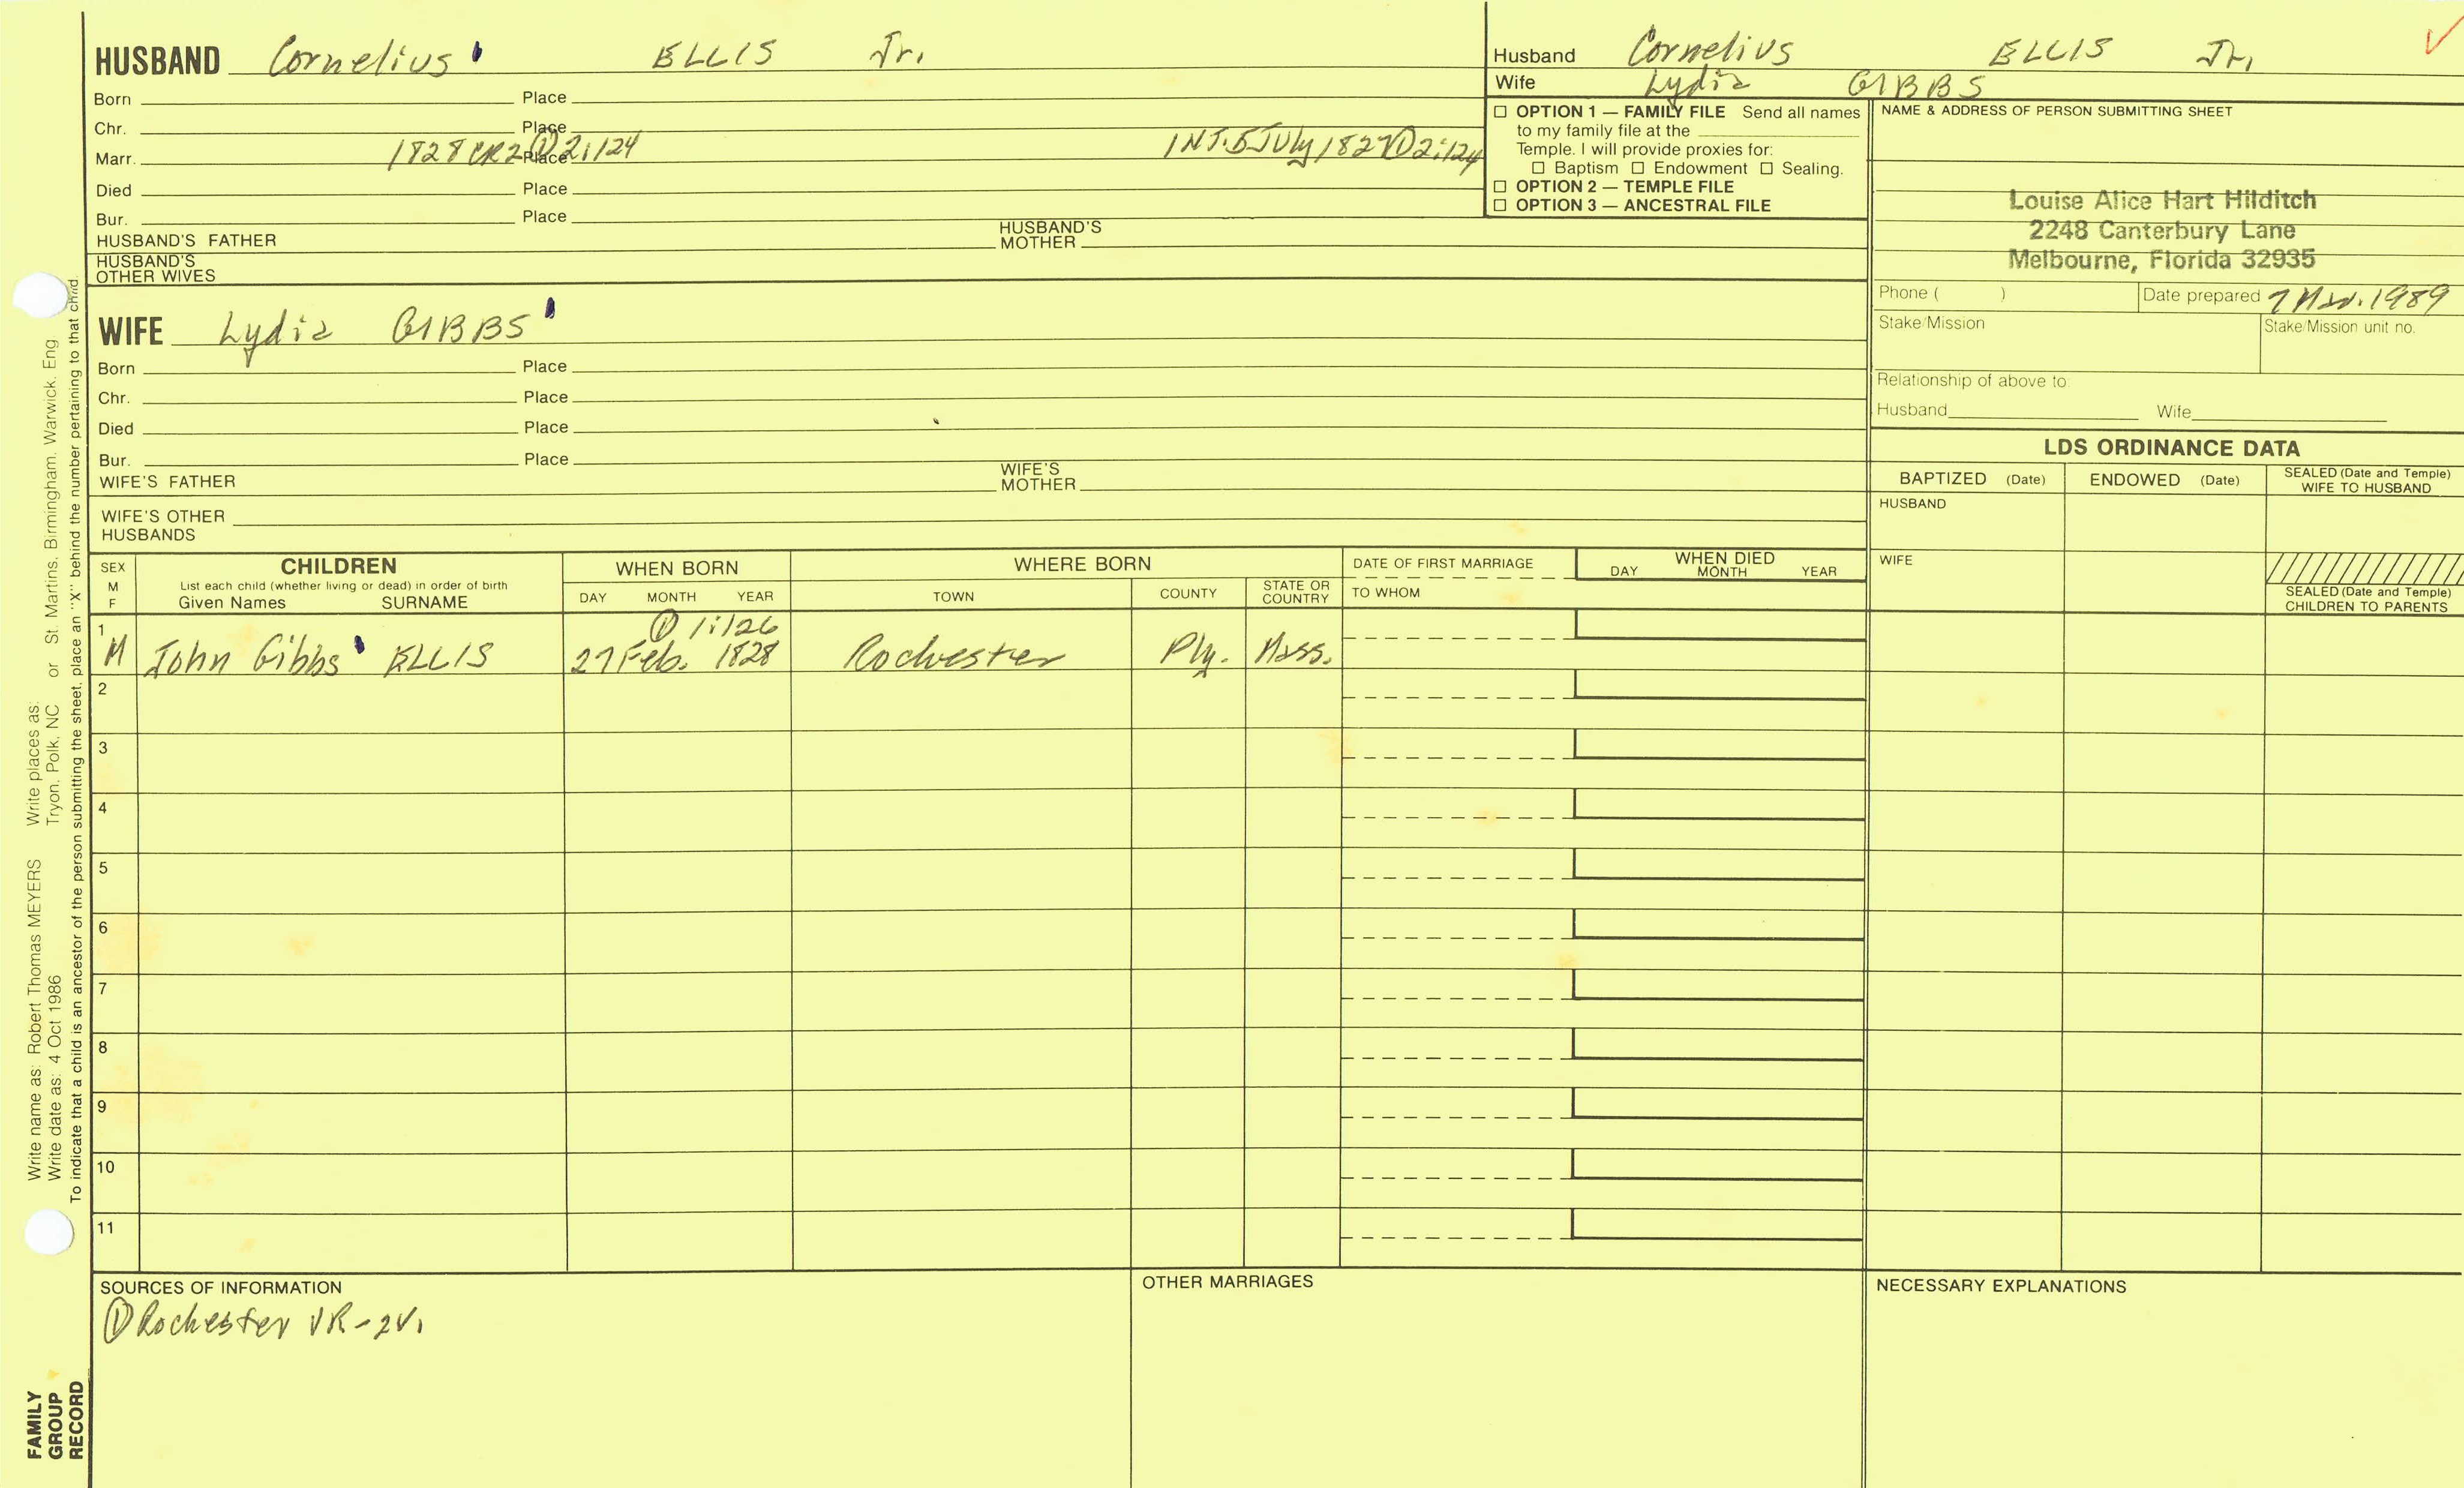 HUSBAND Cornelius ELLIS Jr.
Born Place
Chr. Place
Marr. 1828 CR2 ① 2:124 Place INT. 5 July 1827 ① 2:124
Died Place
Bur. Place
HUSBAND'S FATHER HUSBAND'S MOTHER
HUSBAND'S OTHER WIVES
WIFE Lydia GIBBS
Born Place
Chr. Place
Died Place
Bur. Place
WIFE'S FATHER WIFE'S MOTHER
WIFE'S OTHER HUSBANDS
Husband Cornelius ELLIS Jr.
Wife Lydia GIBBS
☐ OPTION 1 — FAMILY FILE Send all names
to my family file at the
Temple. I will provide proxies for:
☐ Baptism ☐ Endowment ☐ Sealing.
☐ OPTION 2 — TEMPLE FILE
☐ OPTION 3 — ANCESTRAL FILE
NAME & ADDRESS OF PERSON SUBMITTING SHEET
Louise Alice Hart Hilditch
2248 Canterbury Lane
Melbourne, Florida 32935
Phone ( ) Date prepared 7 1989
Stake/Mission Stake/Mission unit no.
Relationship of above to
Husband Wife
LDS ORDINANCE DATA
BAPTIZED (Date) ENDOWED (Date) SEALED (Date and Temple) WIFE TO HUSBAND
HUSBAND
WIFE
SEALED (Date and Temple)
CHILDREN TO PARENTS
SEX M F
CHILDREN
List each child (whether living or dead) in order of birth
Given Names SURNAME
WHEN BORN
DAY MONTH YEAR
WHERE BORN
TOWN COUNTY STATE OR COUNTRY
DATE OF FIRST MARRIAGE
TO WHOM
WHEN DIED
DAY MONTH YEAR
① 1:126
1 M John Gibbs ELLIS 27 Feb. 1828 Rochester Ply. Mass.
2
3
4
5
6
7
8
9
10
11
SOURCES OF INFORMATION
① Rochester VR-2V.
OTHER MARRIAGES
NECESSARY EXPLANATIONS
Write name as: Robert Thomas MEYERS Write places as:
Write date as: 4 Oct 1986 Tryon, Polk, NC or St. Martins, Birmingham, Warwick, Eng
To indicate that a child is an ancestor of the person submitting the sheet, place an "X" behind the number pertaining to that child.
FAMILY
GROUP
RECORD